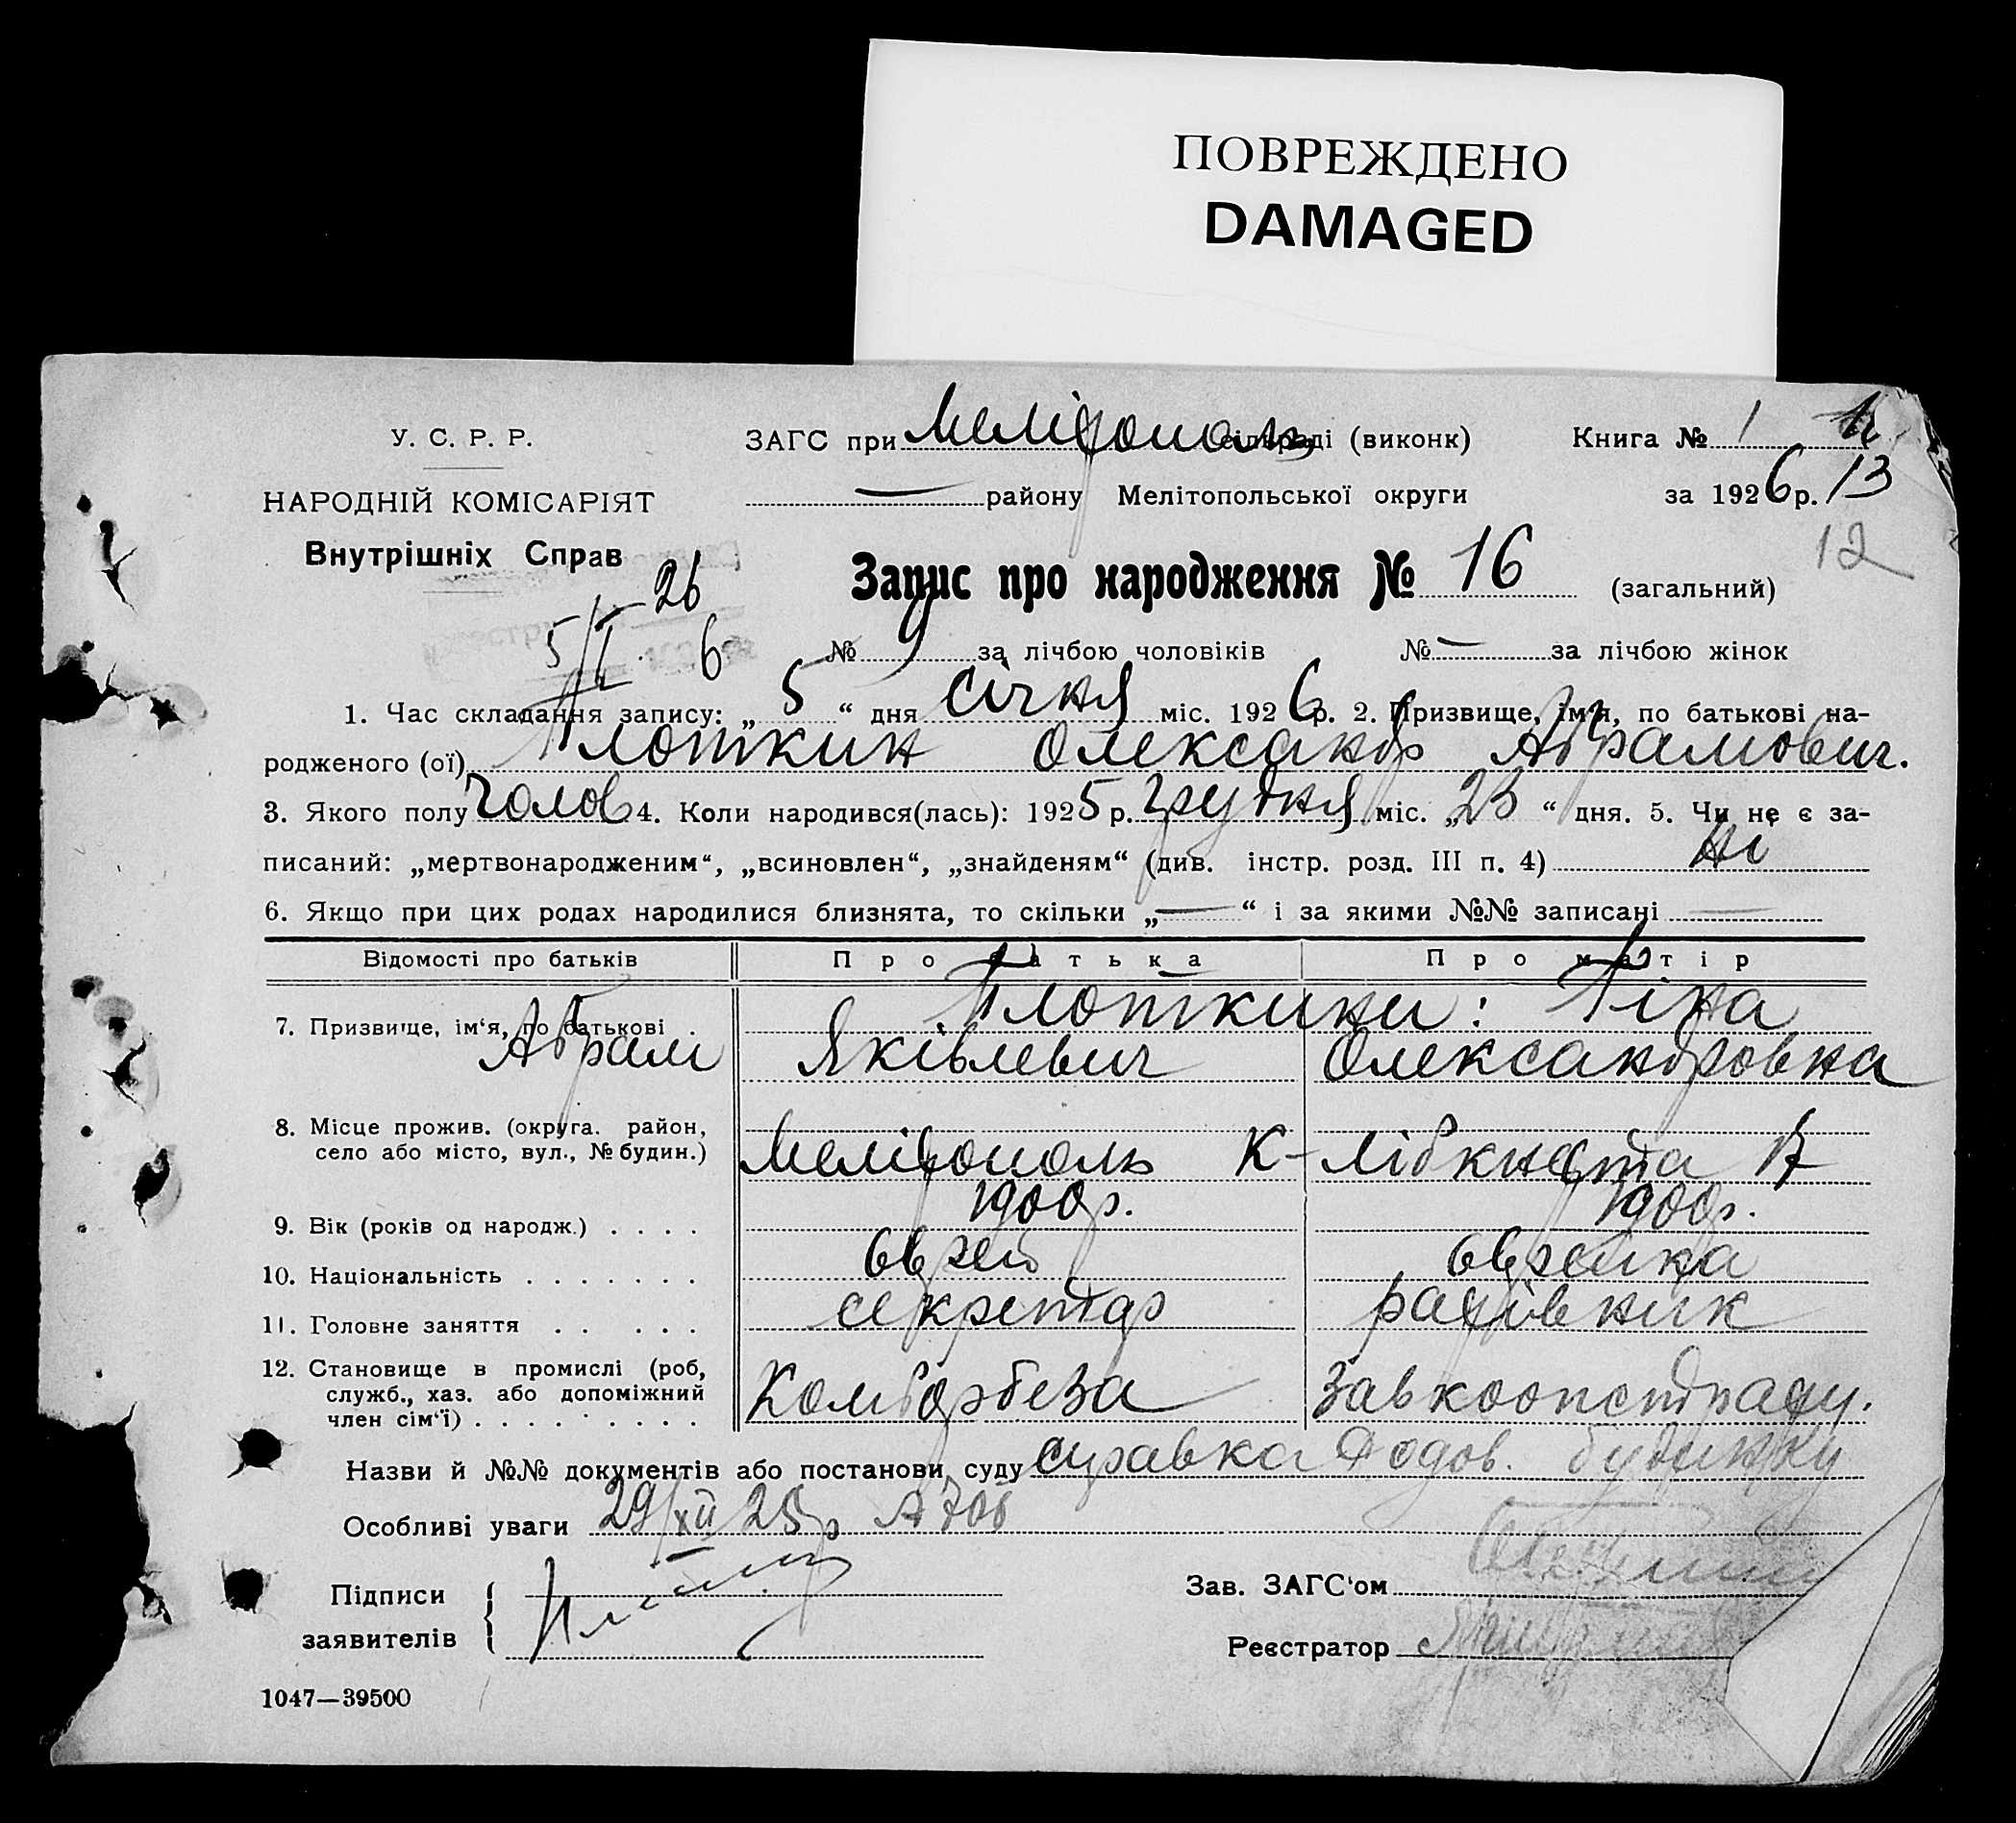 ПОВРЕЖДЕНО
DAMAGED
У. С. Р. Р.
ЗАГС при Мелітополь сільраді (виконк)
Книга № 1
НАРОДНІЙ КОМІСАРІЯТ
— району Мелітопольської округи
за 1926 р. 13
Внутрішніх Справ
12
Запис про народження № 16 (загальний)
26
5/I 6
№ 9 за лічбою чоловіків № — за лічбою жінок
1. Час складання запису: „ 5 “ дня січня міс. 1926 р. 2. Призвище, ім'я, по батькові на-
родженого (ої) Плоткин Олександр Абрамович.
3. Якого полу чолов 4. Коли народився(лась): 1925 р. грудня міс. „23“ дня. 5. Чи не є за-
писаний: „мертвонародженим“, „всиновлен“, „знайденям“ (див. інстр. розд. III п. 4) Ні
6. Якщо при цих родах народилися близнята, то скільки „—“ і за якими №№ записані —
Відомості про батьків Про батька Про матір
7. Призвище, ім‘я, по батькові . Плоткини:
Абрам Яківлевич Олександровна
8. Місце прожив. (округа. район,
село або місто, вул., № будин.) Мелітополь К-Лібкнехта 17
9. Вік (років од народж.) . . . . 1900р. 1900р.
10. Національність . . . . . . . еврей еврейка
11. Головне заняття . . . . . секретар рахівник
12. Становище в промислі (роб,
служб., хаз. або допоміжний
член сім‘ї) . . . . . . . . . Комборбеза Завкоопстраху.
Назви й №№ документів або постанови суду справка Родов. будинку
Особливі уваги 29/XII 25р
Підписи
заявителів
Зав. ЗАГС‘ом
Реєстратор
1047—39500